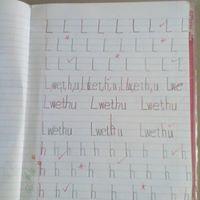 L L L L L L L L L
L L L L L L L L
L L L L L L L
Lwethu, Lwethu, Lwethu, Lwe
Lwethu Lwethu Lwethu
Lwethu Lwethu Lwethu
h h h h h h
h h h h h h h h
h h h h h h h